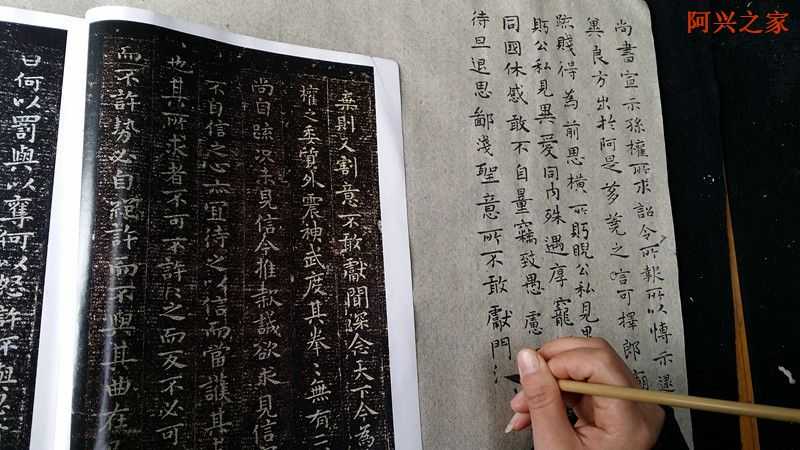 阿兴之家
尚書宣示孫權所求詔令所報所以博示逮
異良方出於阿是芻蕘之言可擇郎廟
疏賤得為前思橫所眄睨公私見異
眄公私見異愛同肉殊遇厚寵
同國休慼敢不自量竊致愚慮
待旦退思鄙淺聖意所不敢獻門
棄則又割意不敢獻聞深念天下今為
權之委質外震神武度其拳〻無有二
尚自疏況未見信今推款誠欲求見信
不自信之心亦宜待之以信而當護其
也其所求者不可不許〻之而反不必可
而不許勢必自絕許而不與其曲在
曰何以罰與以奪何以怒許不